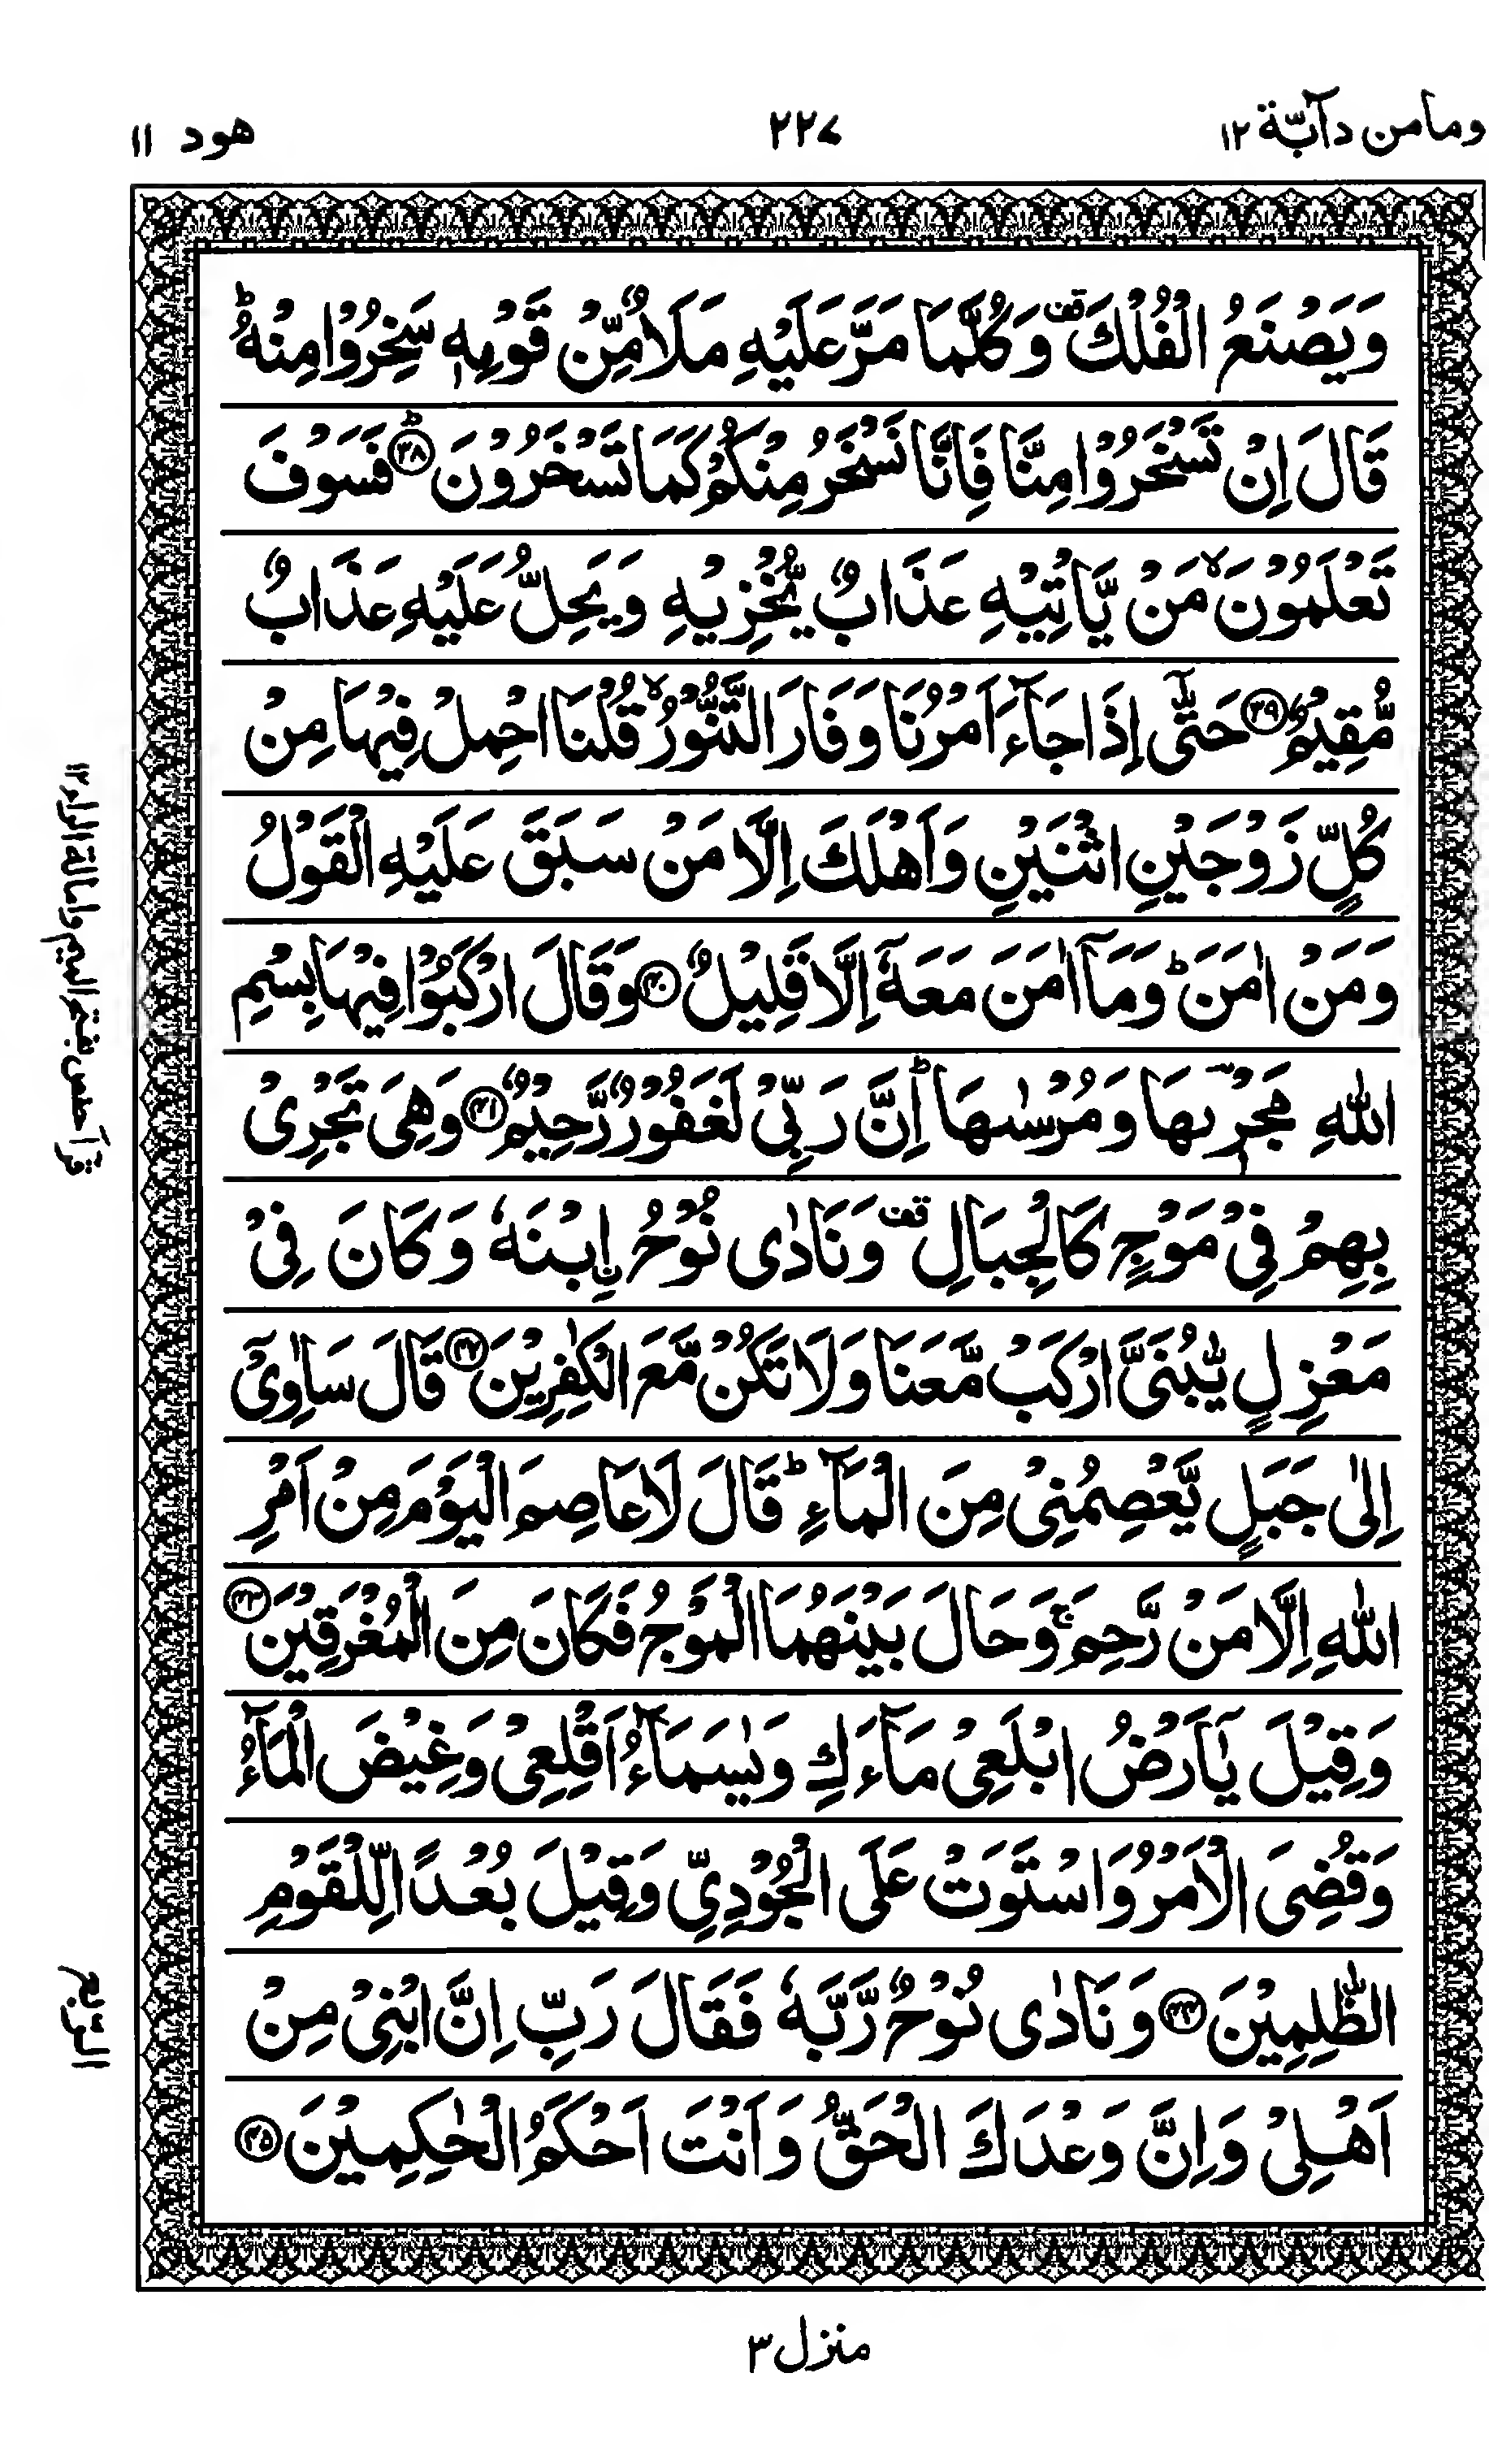 ومامن دآبّة ۱۲
۲۲۷
هود ۱۱
وَيَصْنَعُ الْفُلْكَ ۫ قف وَكُلَّمَا مَرَّ عَلَيْهِ مَلَاٌ مِّنْ قَوْمِهٖ سَخِرُوْا مِنْهُ ؕ
قَالَ اِنْ تَسْخَرُوْا مِنَّا فَاِنَّا نَسْخَرُ مِنْكُمْ كَمَا تَسْخَرُوْنَ ؕ ﴿۳۸﴾ فَسَوْفَ
تَعْلَمُوْنَ ۙ مَنْ يَّاْتِيْهِ عَذَابٌ يُّخْزِيْهِ وَيَحِلُّ عَلَيْهِ عَذَابٌ
مُّقِيْمٌ ﴿۳۹﴾ حَتّٰٓى اِذَا جَآءَ اَمْرُنَا وَفَارَ التَّنُّوْرُ ۙ قُلْنَا احْمِلْ فِيْهَا مِنْ
كُلٍّ زَوْجَيْنِ اثْنَيْنِ وَاَهْلَكَ اِلَّا مَنْ سَبَقَ عَلَيْهِ الْقَوْلُ
وَمَنْ اٰمَنَ ؕ وَمَآ اٰمَنَ مَعَهٗٓ اِلَّا قَلِيْلٌ ﴿۴۰﴾ وَقَالَ ارْكَبُوْا فِيْهَا بِسْمِ
اللّٰهِ مَجْرٖىهَا وَمُرْسٰىهَا ؕ اِنَّ رَبِّىْ لَغَفُوْرٌ رَّحِيْمٌ ﴿۴۱﴾ وَهِىَ تَجْرِىْ
بِهِمْ فِىْ مَوْجٍ كَالْجِبَالِ ۫ قف وَنَادٰى نُوْحُ ۨ ابْنَهٗ وَكَانَ فِىْ
مَعْزِلٍ يّٰبُنَىَّ ارْكَبْ مَّعَنَا وَلَا تَكُنْ مَّعَ الْكٰفِرِيْنَ ﴿۴۲﴾ قَالَ سَاٰوِىْٓ
اِلٰى جَبَلٍ يَّعْصِمُنِىْ مِنَ الْمَآءِ ؕ قَالَ لَا عَاصِمَ الْيَوْمَ مِنْ اَمْرِ
اللّٰهِ اِلَّا مَنْ رَّحِمَ ۚ وَحَالَ بَيْنَهُمَا الْمَوْجُ فَكَانَ مِنَ الْمُغْرَقِيْنَ ﴿۴۳﴾
وَقِيْلَ يٰٓاَرْضُ ابْلَعِىْ مَآءَكِ وَيٰسَمَآءُ اَقْلِعِىْ وَغِيْضَ الْمَآءُ
وَقُضِىَ الْاَمْرُ وَاسْتَوَتْ عَلَى الْجُوْدِىِّ وَقِيْلَ بُعْدًا لِّلْقَوْمِ
الظّٰلِمِيْنَ ﴿۴۴﴾ وَنَادٰى نُوْحٌ رَّبَّهٗ فَقَالَ رَبِّ اِنَّ ابْنِىْ مِنْ
اَهْلِىْ وَاِنَّ وَعْدَكَ الْحَقُّ وَاَنْتَ اَحْكَمُ الْحٰكِمِيْنَ ﴿۴۵﴾
قرأ حفص بفتح الميم وامالة الراء ۱۲
الرّبع
منزل ۳